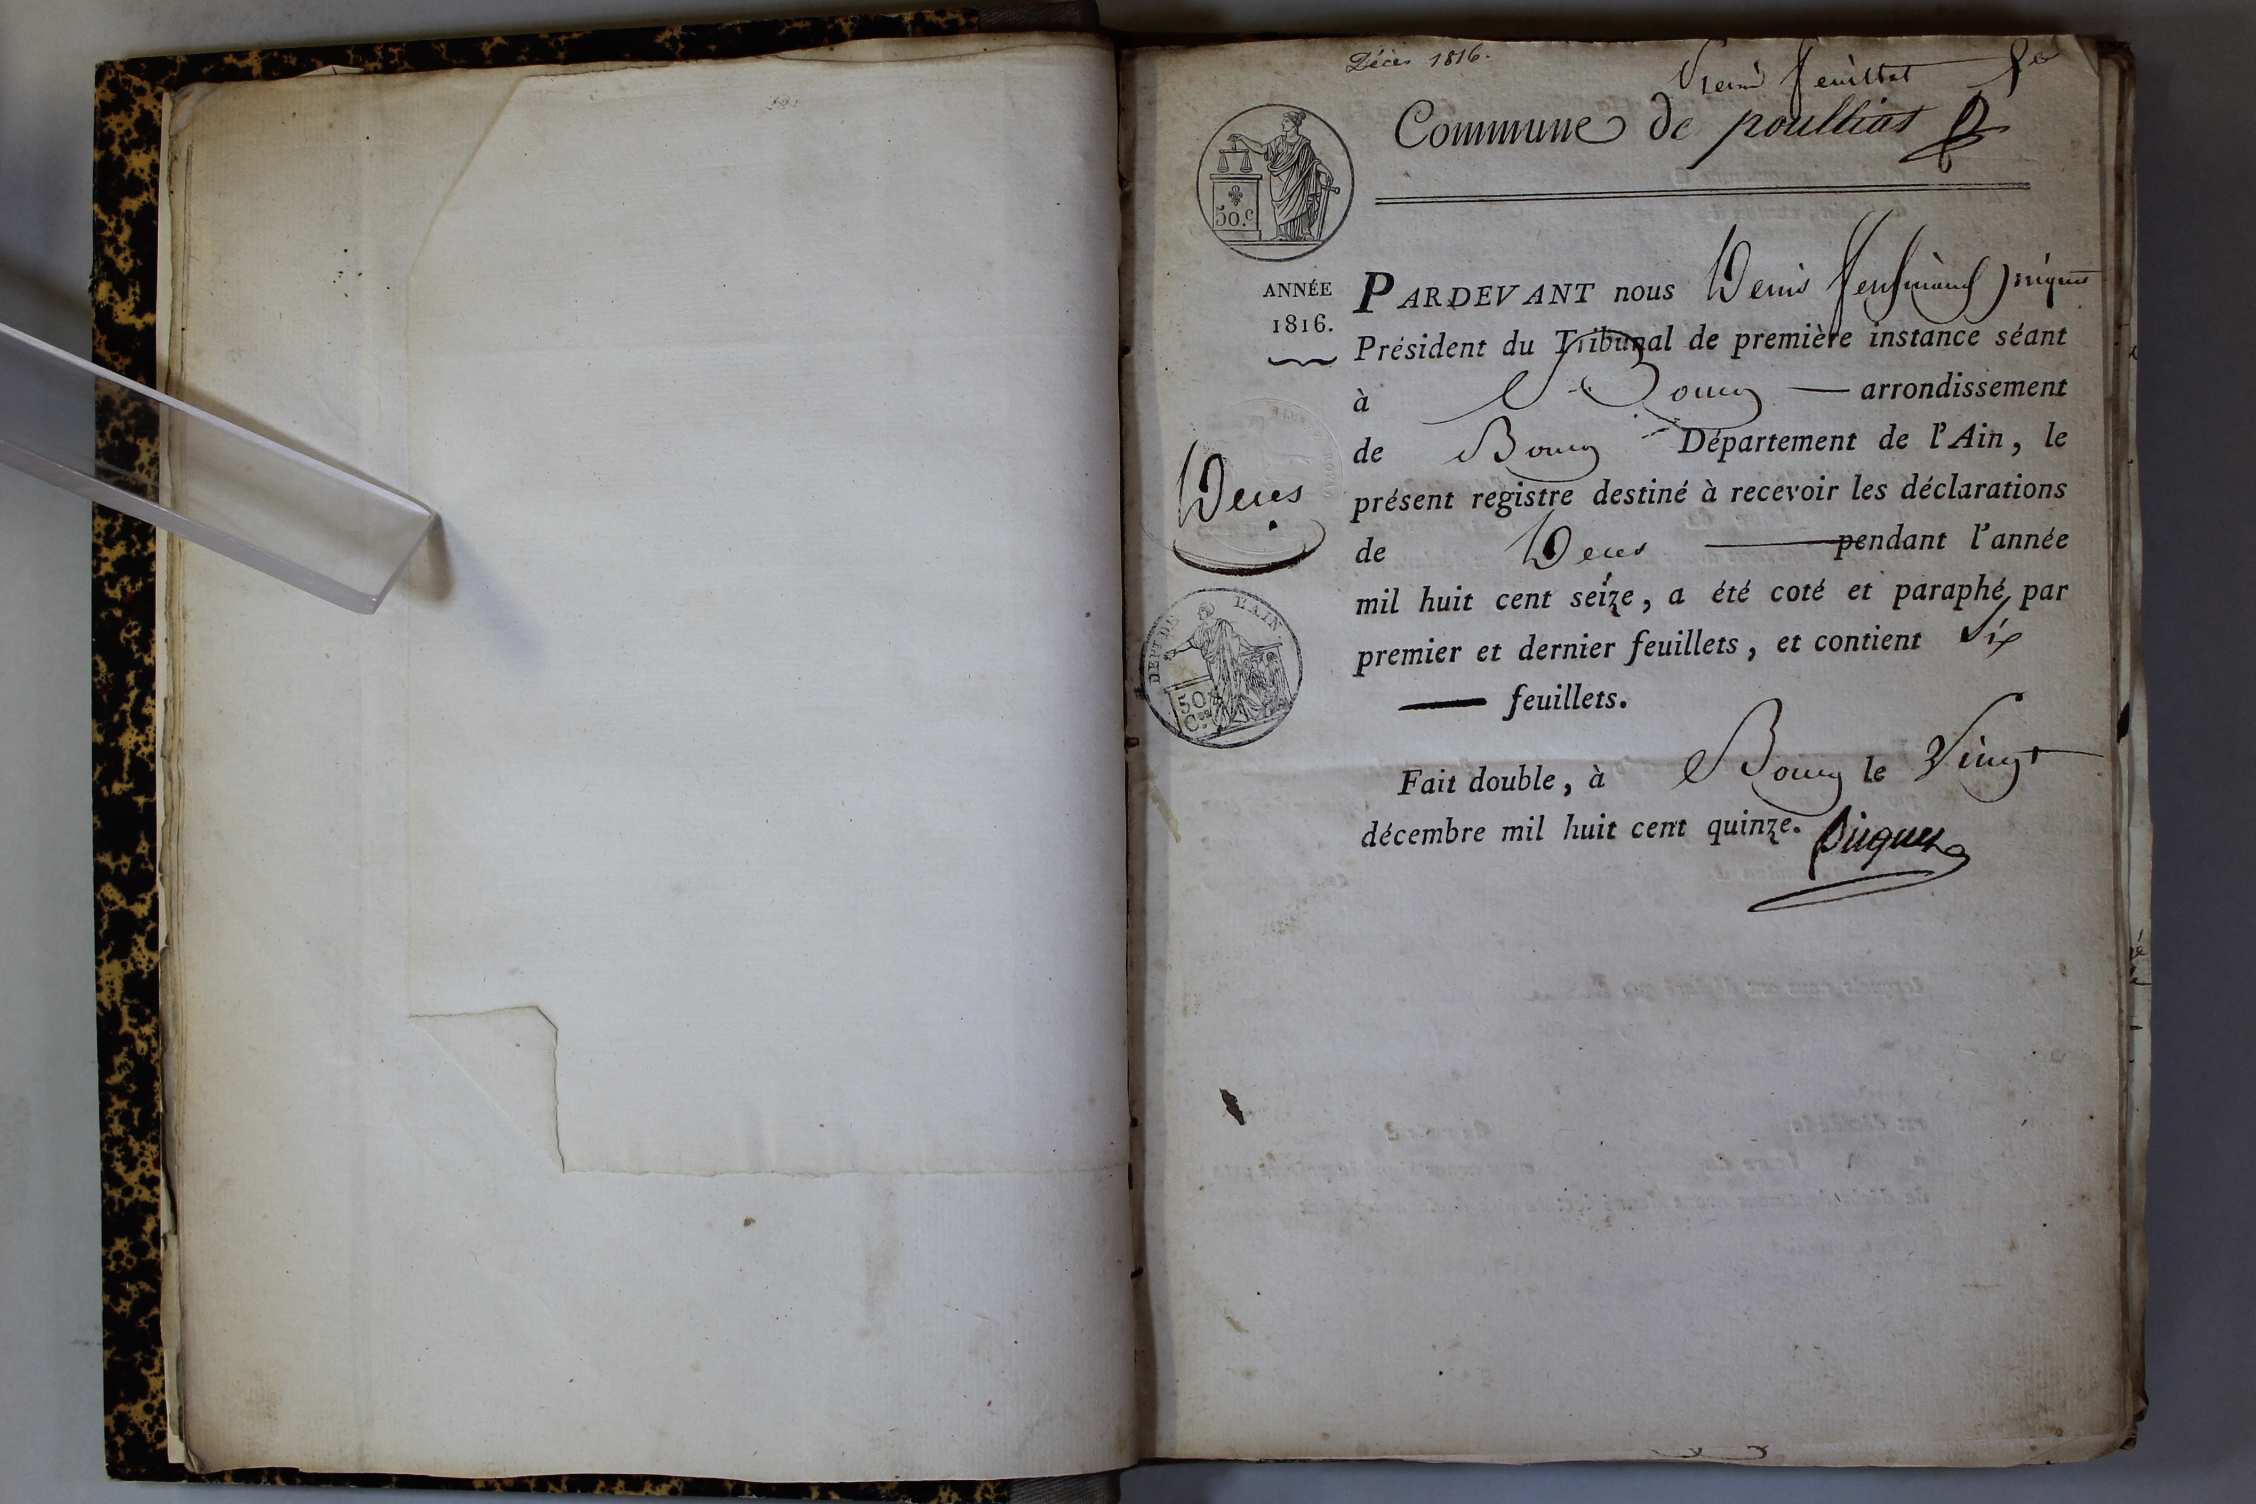 Décès 1816.
feuillet
Commune de poulliat
50.c
ANNÉE
1816.
PARDEVANT nous Denis ferdinand
Président du Tribunal de première instance séant
à Bourg arrondissement
de Bourg Département de l'Ain, le
présent registre destiné à recevoir les déclarations
de Deces pendant l'année
mil huit cent seize, a été coté et paraphé par
premier et dernier feuillets, et contient Six
feuillets.
Deces
DEPT. DE L'AIN
50
Cmes
Fait double, à Bourg le Vingt
décembre mil huit cent quinze.